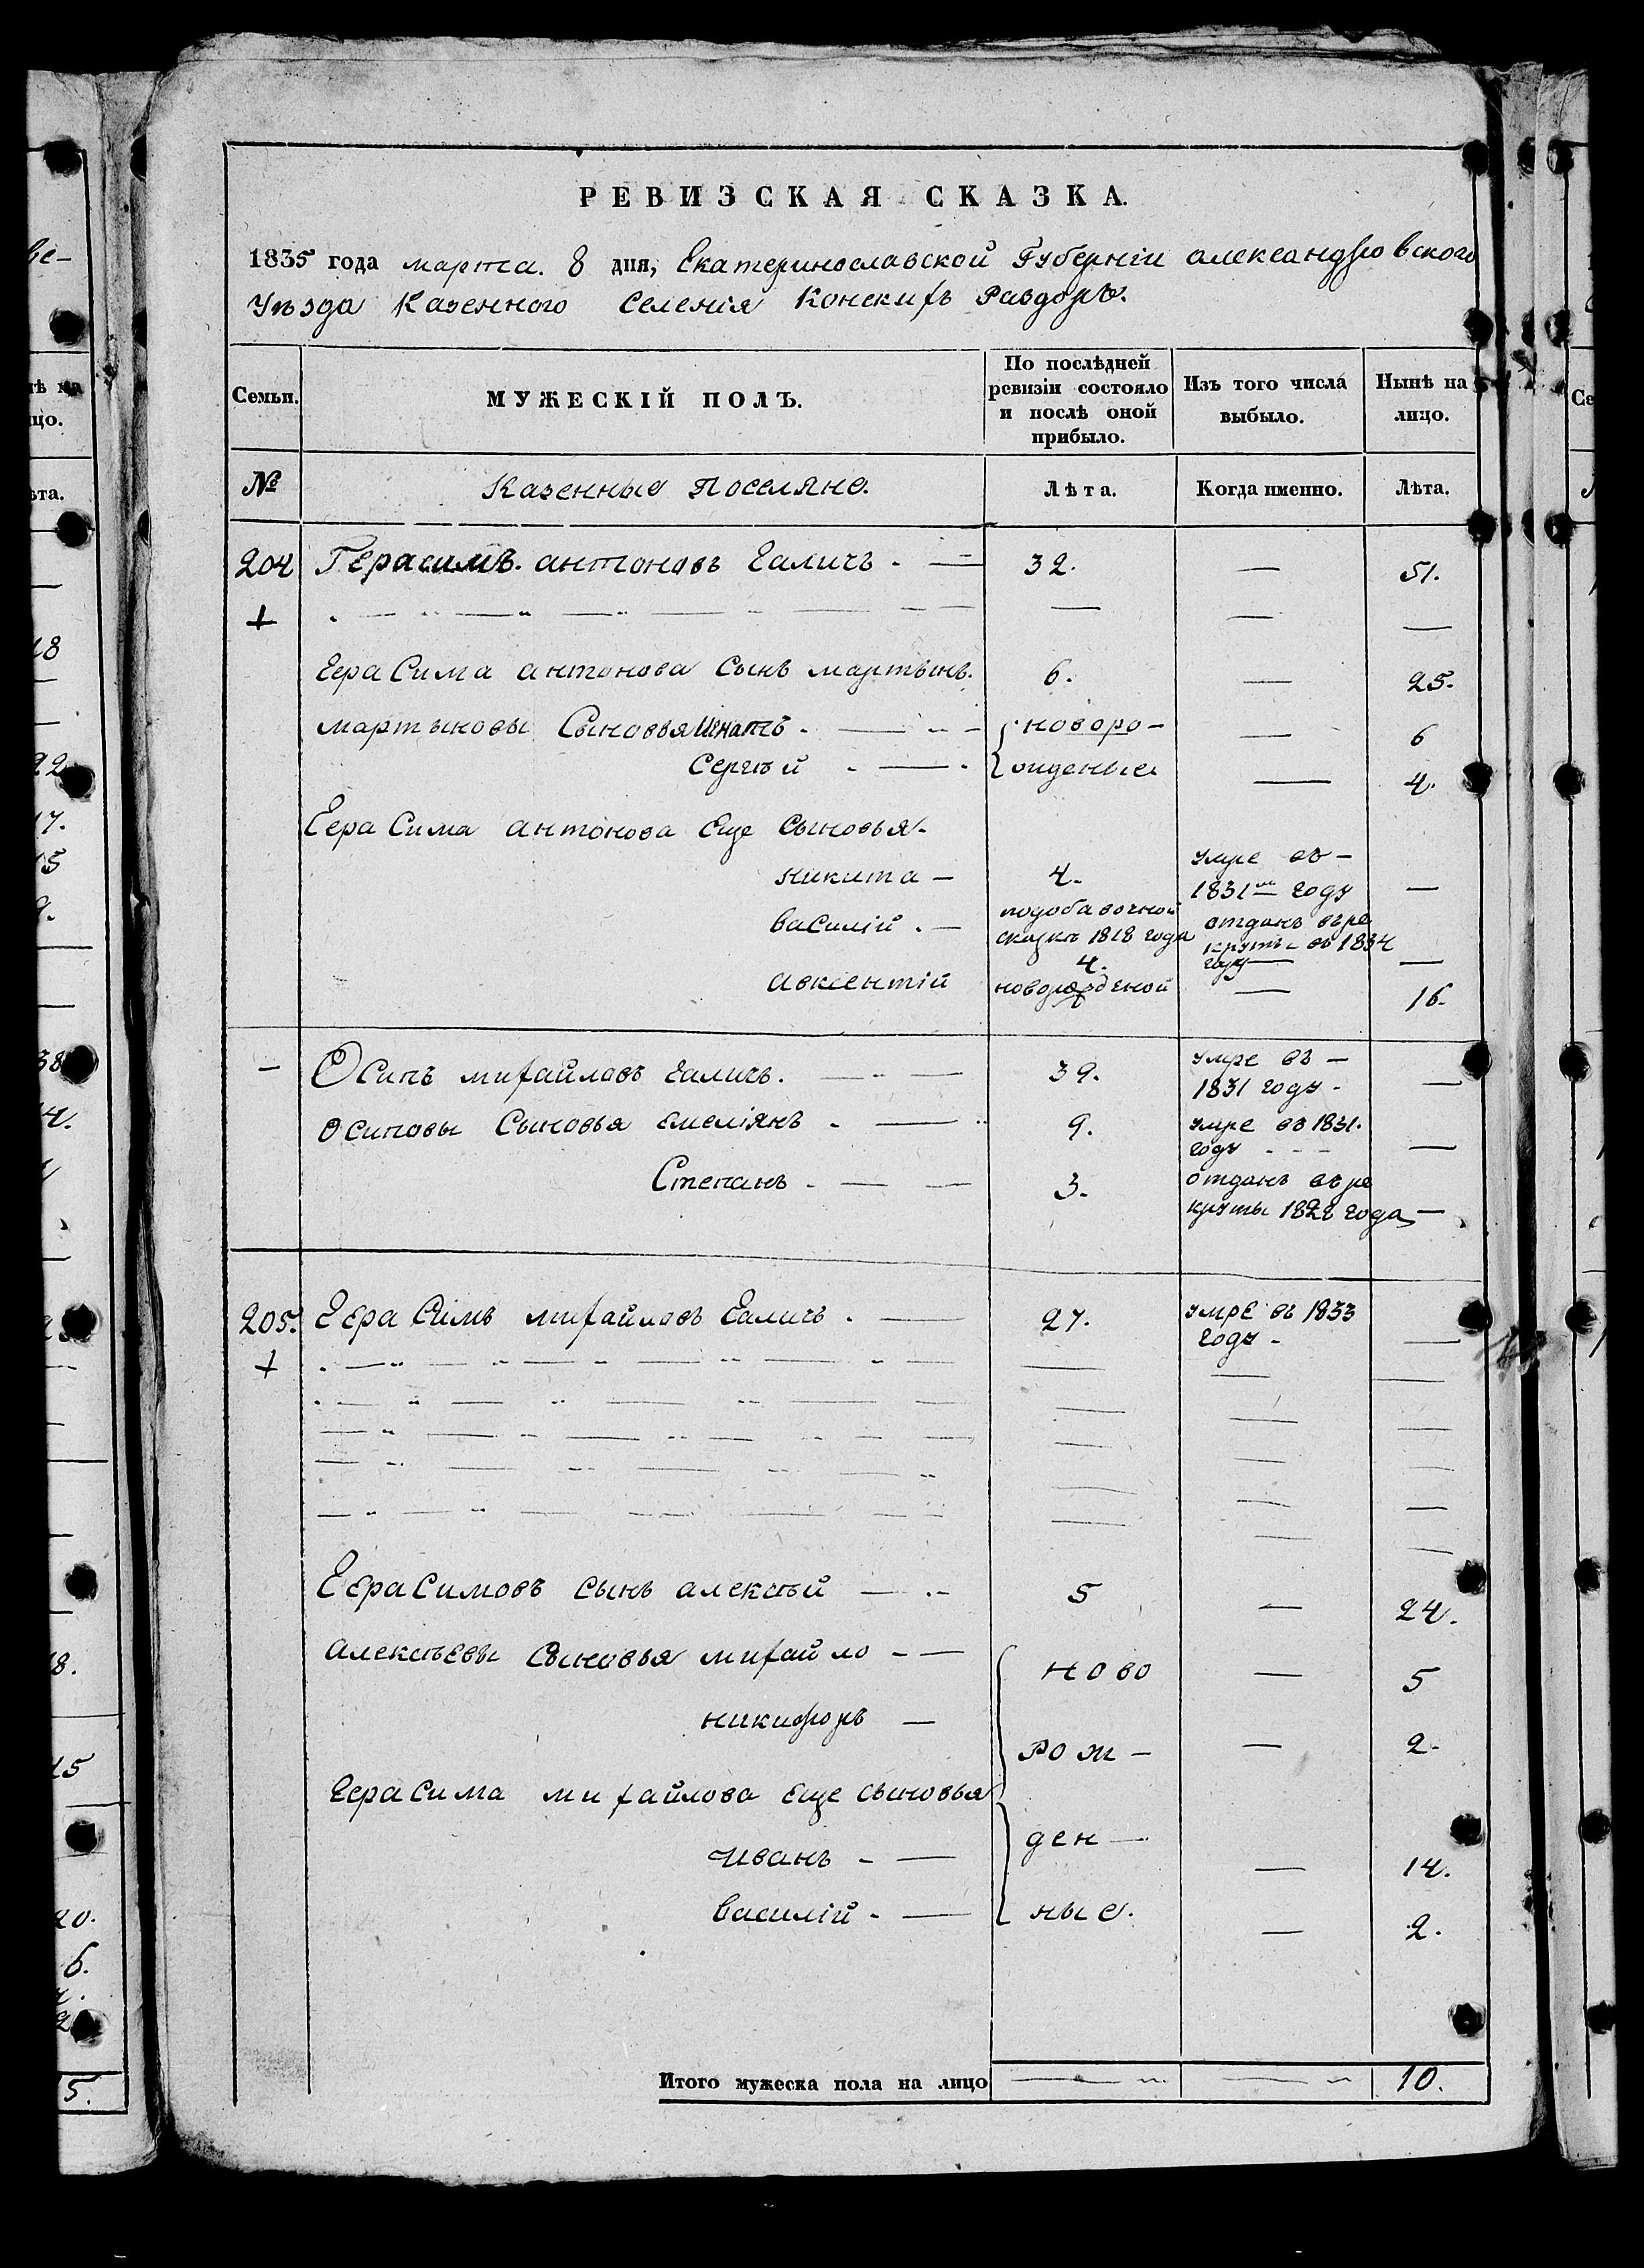 РЕВИЗСКАЯ СКАЗКА.
1835 года марта. 8 дня, Екатеринославской Губерніи александровского
Уѣзда Казенного Селенія Конскихъ Раздоръ.
Семьи. МУЖЕСКІЙ ПОЛЪ. По послѣдней ревизіи состояло и послѣ оной прибыло. Изъ того числа выбыло. Нынѣ на лицо.
№ Казенные Поселяне. Лѣта. Когда именно. Лѣта.
204 Герасимъ антоновъ Галичъ. — 32. — 51.
+ — — —
Герасима антонова Сынъ мартынъ. 6. — 25.
мартыновы Сыновья Игнатъ. — новоро- — 6
Сергѣй . — жденые. — 4.
Герасима антонова Еще Сыновья.
никита — 4. умре въ — 1831м году —
Василій . — подобавочной сказкѣ 1818 года 4. отданъ въ рекруты въ 1834 году — —
Авксентій новорожденой — 16.
— Осипъ михайловъ Галичъ. — 39. умре въ — 1831 году. —
Осиповы Сыновья Емеліянъ . — 9. умре въ 1831. году —
Степанъ . — — 3. отданъ въ рекруты 1828 года —
205. Герасимъ михайловъ Галичъ . — 27. умре въ 1833 году — —
+ — — —
Герасимовъ сынъ алексѣй — 5 — 24.
алексѣевы Сыновья михайло — ново — 5
никифоръ — рож — — 2.
Герасима михайлова Еще сыновья
Иванъ — ден — — 14.
Василій — ные. — 2.
Итого мужеска пола на лицо — — 10.
ве-
нѣ на
цо.
ѣта.
18
22
17.
15
9.
38
4.
18.
15
20.
6.
5.
Се